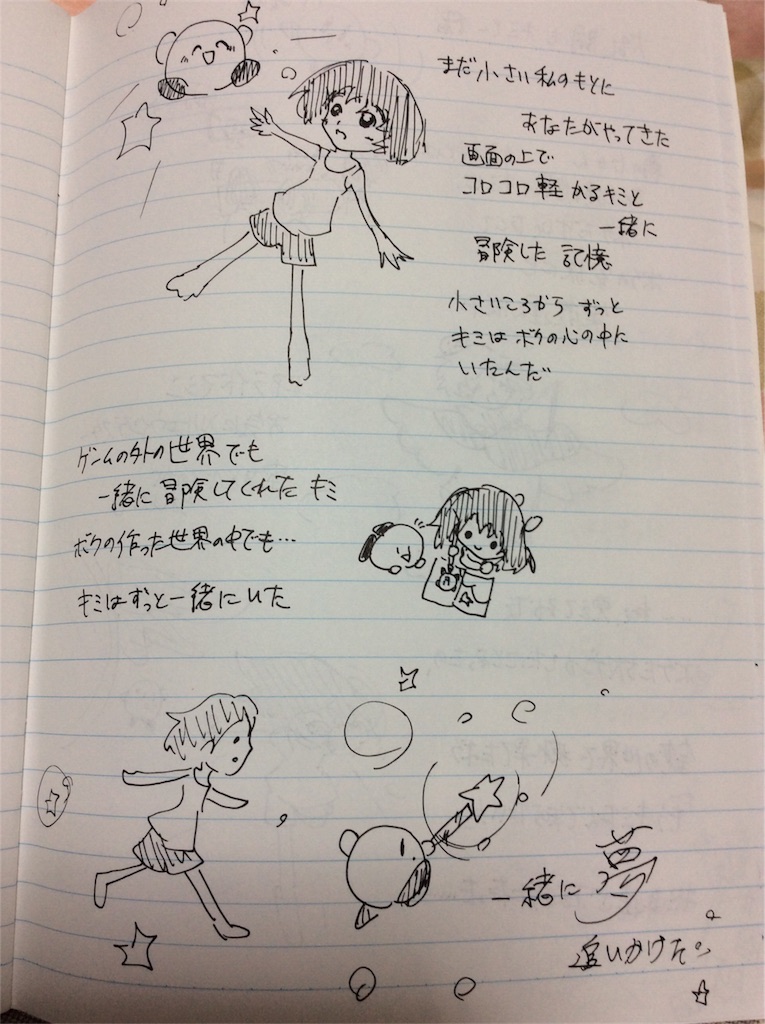 まだ小さい私のもとに
あなたがやってきた
画面の上で
コロコロ転がるキミと
一緒に
冒険した記憶
小さいころからずっと
キミはボクの心の中に
いたんだ
ゲームの外の世界でも
一緒に冒険してくれたキミ
ボクの作った世界の中でも…
キミはずっと一緒にいた
一緒に夢
追いかけた。